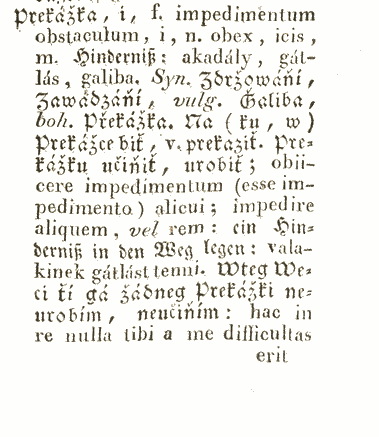 Prekážka, i, f. impedimentum
obstaculum, i, n. obex, icis,
m. Hinderniß: akadály, gát-
lás, galiba. Syn. Zdržowáňí,
Zawádzáňí, vulg. Galiba,
boh. Překážka. Na (ku, w)
Prekážce biť, v. prekaziť. Pre-
kážku učiňiť, urobiť; obii-
cere impedimentum (esse im-
pedimento) alicui; impedire
aliquem, vel rem: ein Hin-
derniß in den Weg legen: vala-
kinek gátlást tenni. Wteg We-
ci ťi gá žádneg Prekážki ne-
urobím, neučiňím: hac in
re nulla tibi a me difficultas
erit